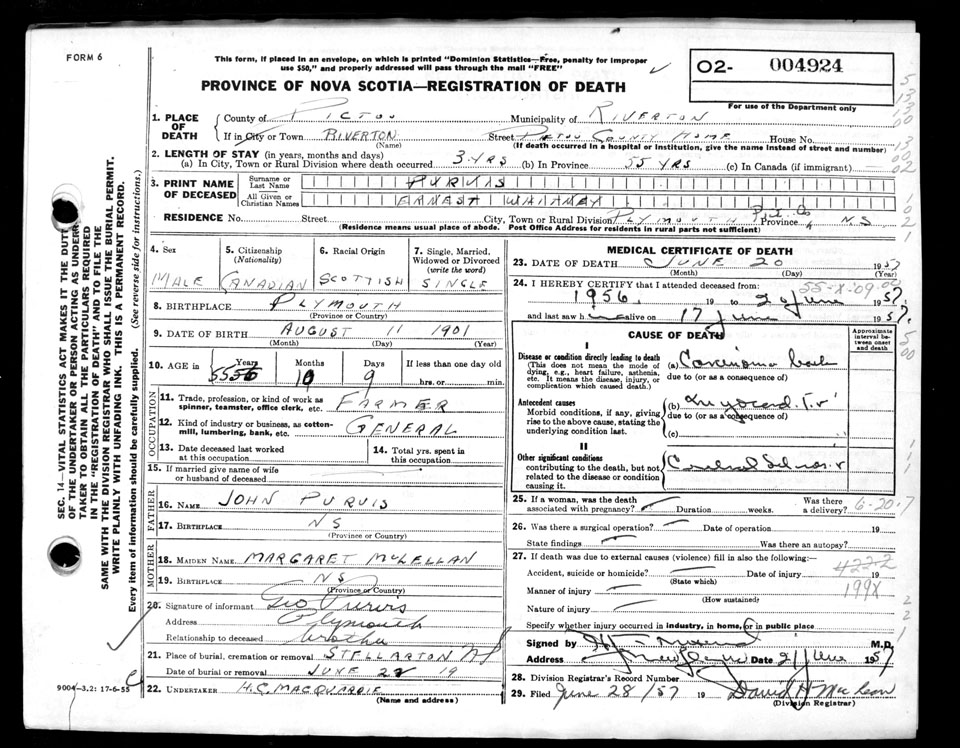 FORM 6
This form, if placed in an envelope, on which is printed "Dominion Statistics—Free, penalty for improper
use $50," and properly addressed will pass through the mail "FREE"
O2- 004924
PROVINCE OF NOVA SCOTIA—REGISTRATION OF DEATH
For use of the Department only
1. PLACE OF DEATH
County of PICTOU Municipality of RIVERTON
If in City or Town RIVERTON Street PICTOU COUNTY HOME House No.
(Name) (If death occurred in a hospital or institution, give the name instead of street and number)
2. LENGTH OF STAY (in years, months and days)
(a) In City, Town or Rural Division where death occurred 3 YRS (b) In Province 55 YRS (c) In Canada (if immigrant)
3. PRINT NAME OF DECEASED
Surname or Last Name PURVIS
All Given or Christian Names ERNEST WHITNEY
RESIDENCE No. Street City, Town or Rural Division PLYMOUTH Pict. Co Province NS
(Residence means usual place of abode. Post Office Address for residents in rural parts not sufficient)
4. Sex
MALE
5. Citizenship
(Nationality)
CANADIAN
6. Racial Origin
SCOTTISH
7. Single, Married, Widowed or Divorced
(write the word)
SINGLE
8. BIRTHPLACE PLYMOUTH
(Province or County)
9. DATE OF BIRTH AUGUST 11 1901
(Month) (Day) (Year)
10. AGE in
Years Months Days If less than one day old
55 10 9 hrs. or min.
OCCUPATION
11. Trade, profession, or kind of work as
spinner, teamster, office clerk, etc. FARMER
12. Kind of industry or business, as cotton-
mill, lumbering, bank, etc. GENERAL
13. Date deceased last worked
at this occupation
14. Total yrs. spent in
this occupation
15. If married give name of wife
or husband of deceased
FATHER
16. NAME JOHN PURVIS
17. BIRTHPLACE NS
(Province or County)
MOTHER
18. MAIDEN NAME MARGARET McLELLAN
19. BIRTHPLACE NS
(Province or County)
20. Signature of informant Geo Purvis
Address Plymouth
Relationship to deceased brother
21. Place of burial, cremation or removal STELLARTON NS
Date of burial or removal JUNE 22 19
22. UNDERTAKER H.C. MACQUARRIE
(Name and address)
9004-3.2: 17-6-55
MEDICAL CERTIFICATE OF DEATH
23. DATE OF DEATH JUNE 20 1957
(Month) (Day)
24. I HEREBY CERTIFY that I attended deceased from:
1956 19 to 20 June 1957
and last saw h alive on 17 June 1957
CAUSE OF DEATH
Approximate interval between onset and death
I
Disease or condition directly leading to death
(This does not mean the mode of
dying, e.g., heart failure, asthenia,
etc. It means the disease, injury, or
complication which caused death.)
(a)
due to (or as a consequence of)
Antecedent causes
Morbid conditions, if any, giving
rise to the above cause, stating the
underlying condition last.
(b)
due to (or as a consequence of)
(c)
II
Other significant conditions
contributing to the death, but not
related to the disease or condition
causing it.
25. If a woman, was the death
associated with pregnancy? Duration weeks. Was there
a delivery? 6-20-7
26. Was there a surgical operation? Date of operation 19
State findings Was there an autopsy?
27. If death was due to external causes (violence) fill in also the following:—
Accident, suicide or homicide? Date of injury 19
(State which)
422-2
Manner of injury
(How sustained)
199X
Nature of injury
Specify whether injury occurred in industry, in home, or in public place
Signed by M.D.
Address Date 21 June 1957
28. Division Registrar's Record Number
29. Filed June 28/57 19 David H MacLean
(Division Registrar)
SEC. 14—VITAL STATISTICS ACT MAKES IT THE DUTY
OF THE UNDERTAKER OR PERSON ACTING AS UNDER-
TAKER TO OBTAIN ALL THE PARTICULARS REQUIRED
IN THE "REGISTRATION OF DEATH" AND TO FILE THE
SAME WITH THE DIVISION REGISTRAR WHO SHALL ISSUE THE BURIAL PERMIT.
WRITE PLAINLY WITH UNFADING INK. THIS IS A PERMANENT RECORD.
Every item of information should be carefully supplied. (See reverse side for instructions.)